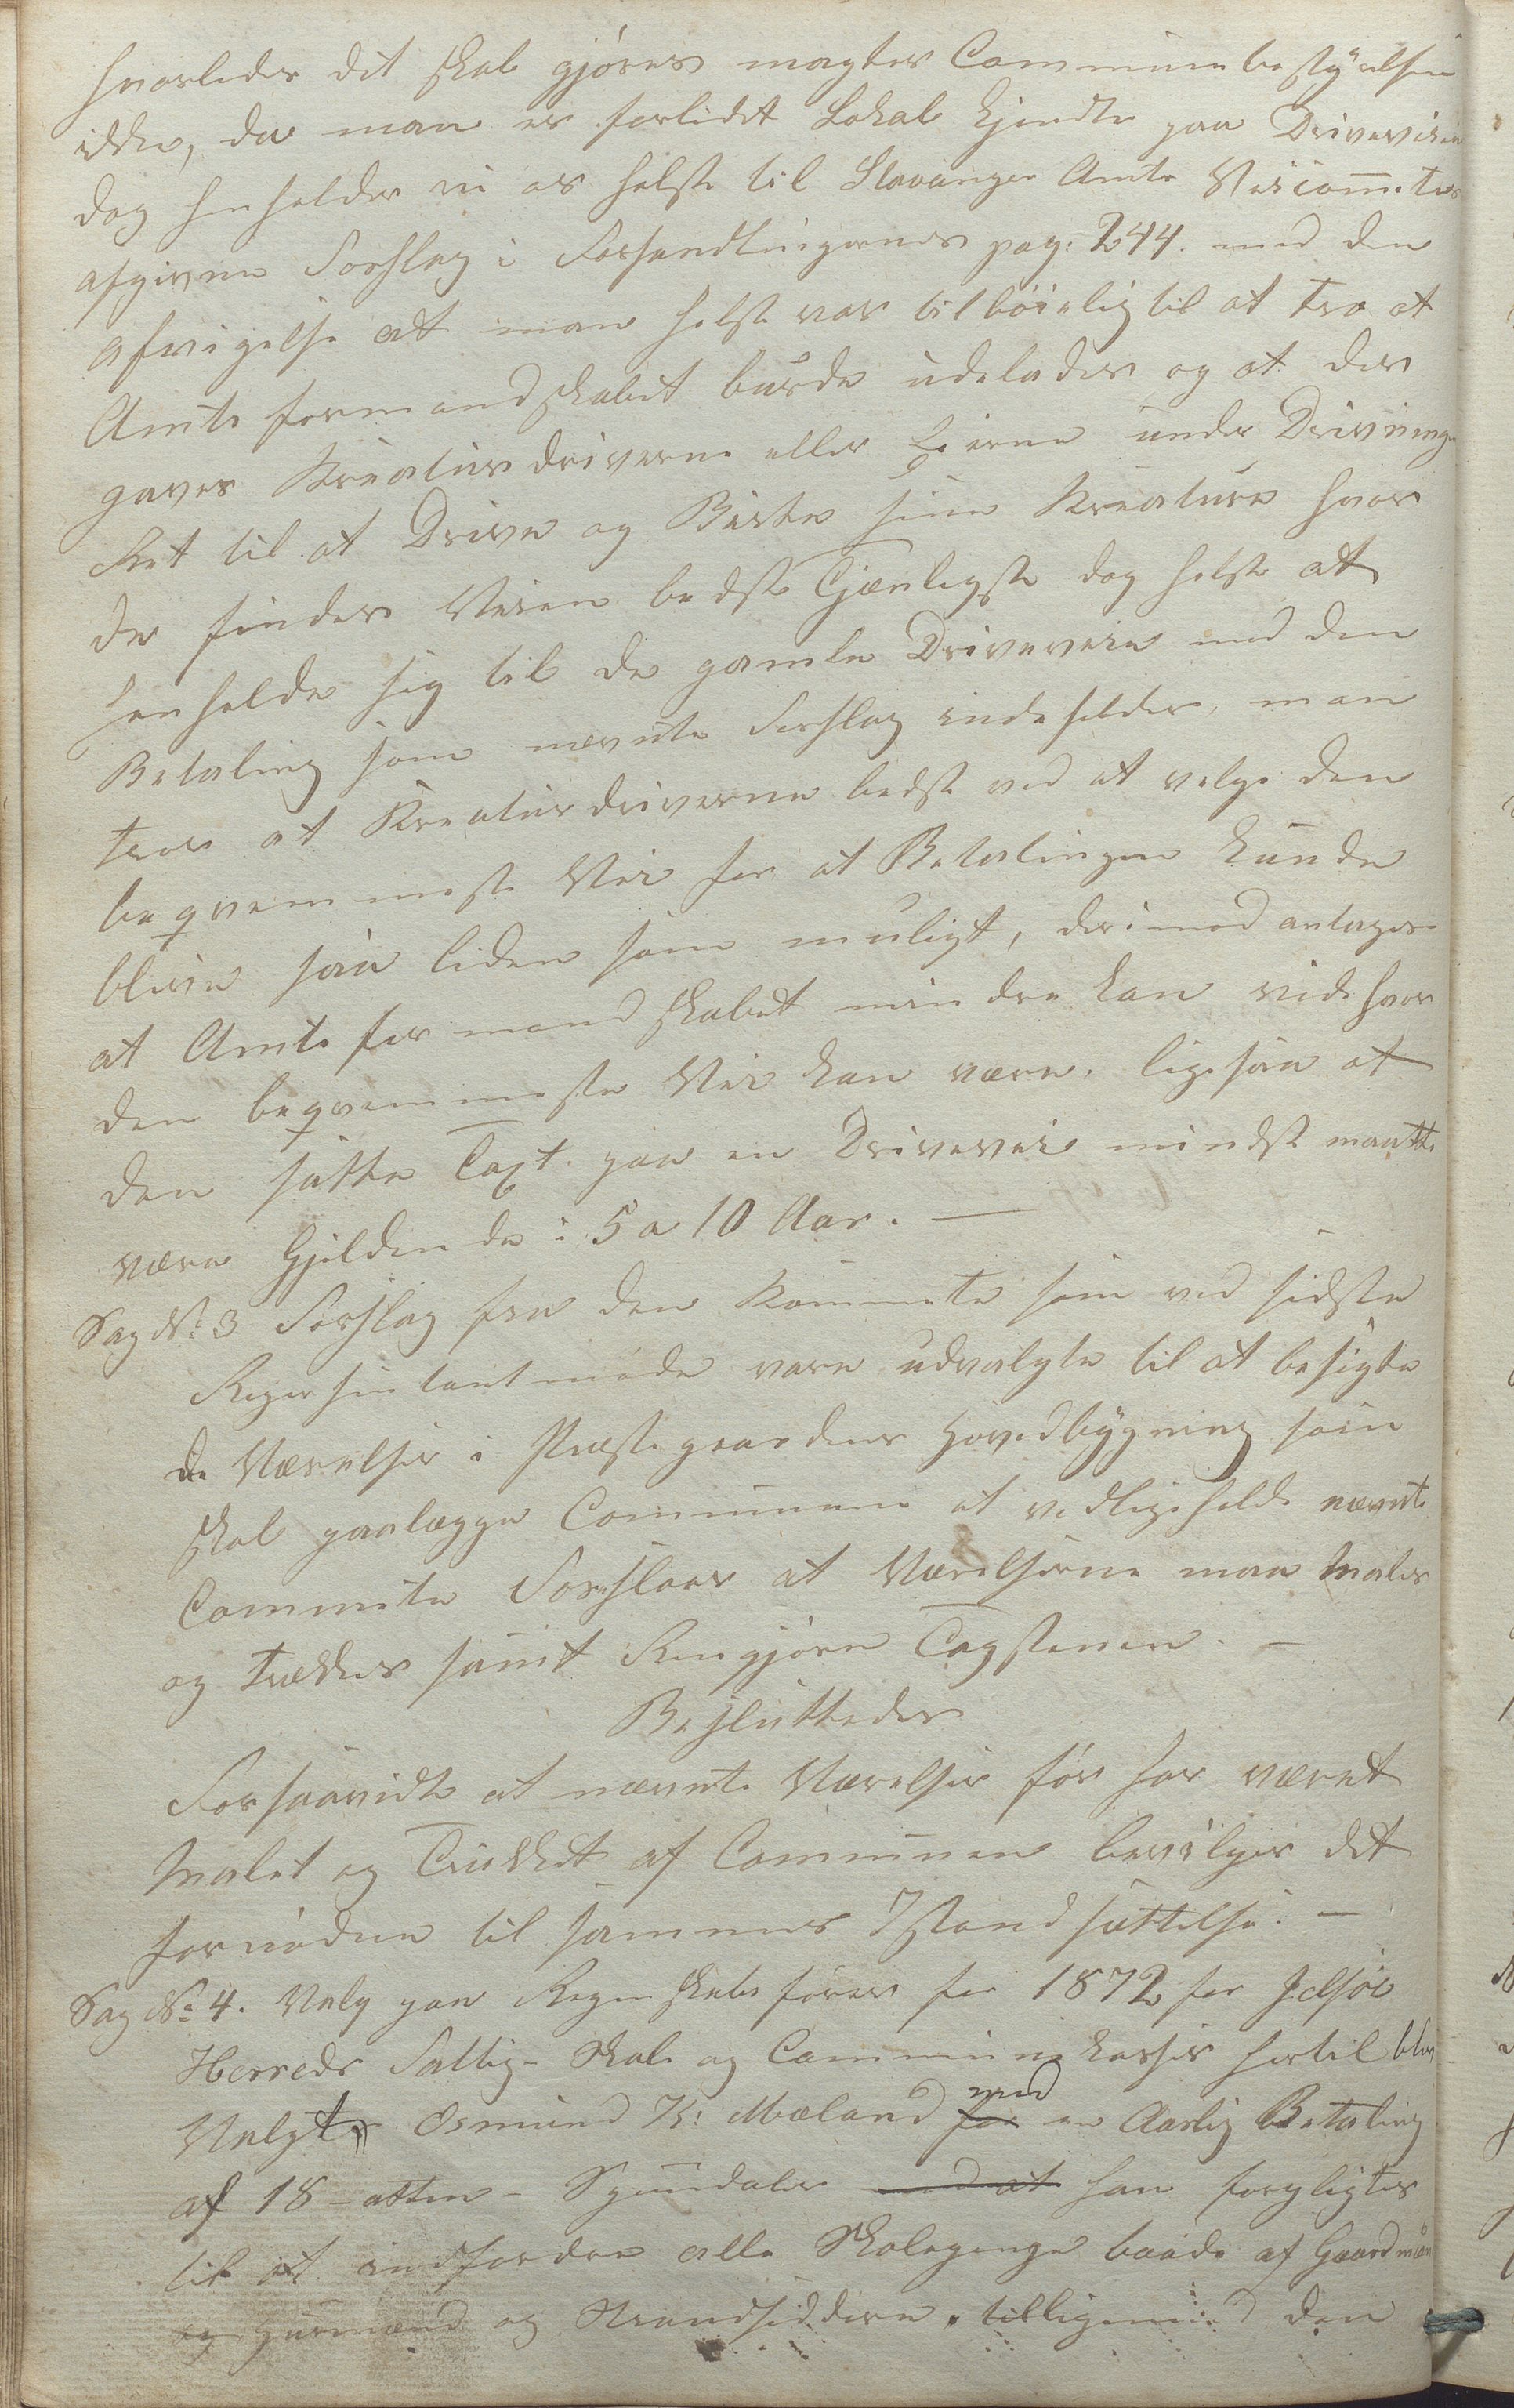 hvorledes dit skal gjøres magter Communebestyrelsen
ikke, da man er forlidet Lokal kjendte paa Driveveien
dog henholder vi os helst til Stavanger Amts Veicommites
afgivne Forslag i Forhandlingernes pag: 244. med den
afvigelse at man helst var tilbøielig til at tro at
Amtsformandskabet burde udelades og at der
gaves Kreaturdriverne eller Eierne under Drivning
Ret til at Drive og Beite sine Kreature hvor
de finder Veien bedst Tjænligst dog helst at
henholde sig til de gamle Driveveie med den
Betaling som nævnte Forslag indeholder, man
tror at Kreaturdriverne bedst ved at velge den
beqvemmeste Vei for at Betalingen kunde
blive saa liden som muligt, derimod antages
at Amtsformandskabet mindre kan vide hvor
den beqvemmeste Vei kan være. ligesaa at
den satte Taxt. paa en Drivevei mindst maatte
være Gjeldende i 5 a 10 Aar. —
Sag N: 3 Forslag fra den Kommite som ved sidste
Repersentantmøde vare udvalgte til at besigte
de Værelser i Præstegaardens Hovedbygning som
skal paalægge Communen at vedligeholde nævnte
Commite Foreslaar at Værelserne maa Males
og trækkes samt Rengjøre Tagstenen. —
Besluttedes
Forsaavidt at nævnte Værelser før har været
Malet og Trukket af Communen bevilges det
fornødne til sammes Istandsættelse. —
Sag N: 4. Valg paa Regnskabsfører for 1872 for Jelsøe
Herreds Fattig- Skole og Communekasser hertil blev
Valgt Osmund K: Mæland for med en Aarlig Betaling
af 18 – atten – Speciedaler med at han forpligtes
til at indfordre alle Skolepenge baade af Gaardmæn
og Husmænd og Strandsiddere tilligemed den